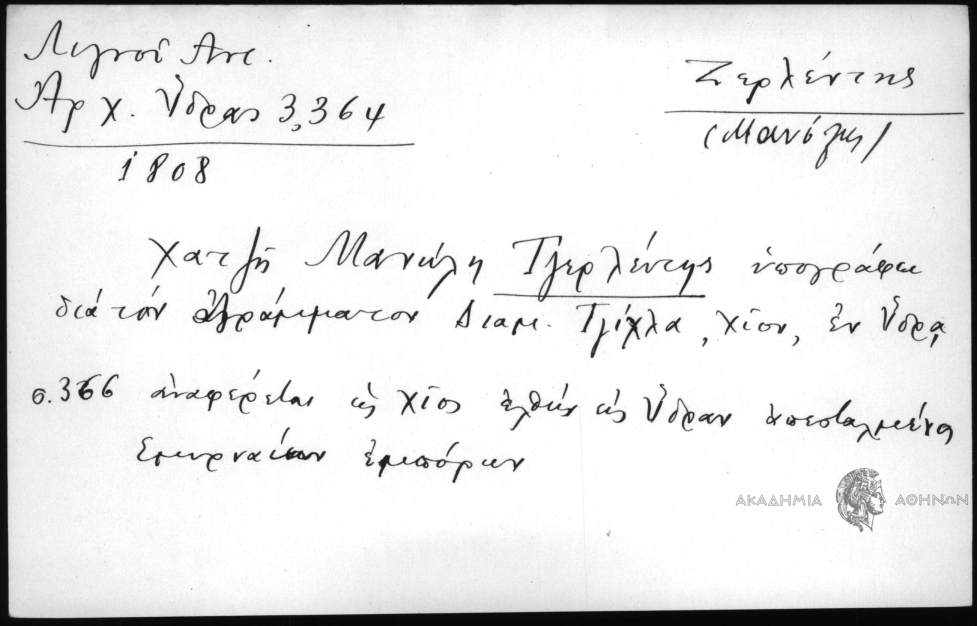 Λιγνοῦ Ἀντ.
Ἀρχ. Ὕδρας 3,364
1808
Ζερλέντης
(Μανόλης)
Χατζῆ Μανώλη Τζερλέντης ὑπογράφει
διὰ τὸν ἀγράμματον Διαμ. Τζίχλα, Χῖον, ἐν Ὕδρᾳ,
σ. 366 ἀναφέρεται ὡς Χῖος ἐλθὼν εἰς Ὕδραν ἀπεσταλμένος
Σμυρναίων ἐμπόρων
ΑΚΑΔΗΜΙΑ ΑΘΗΝΩΝ